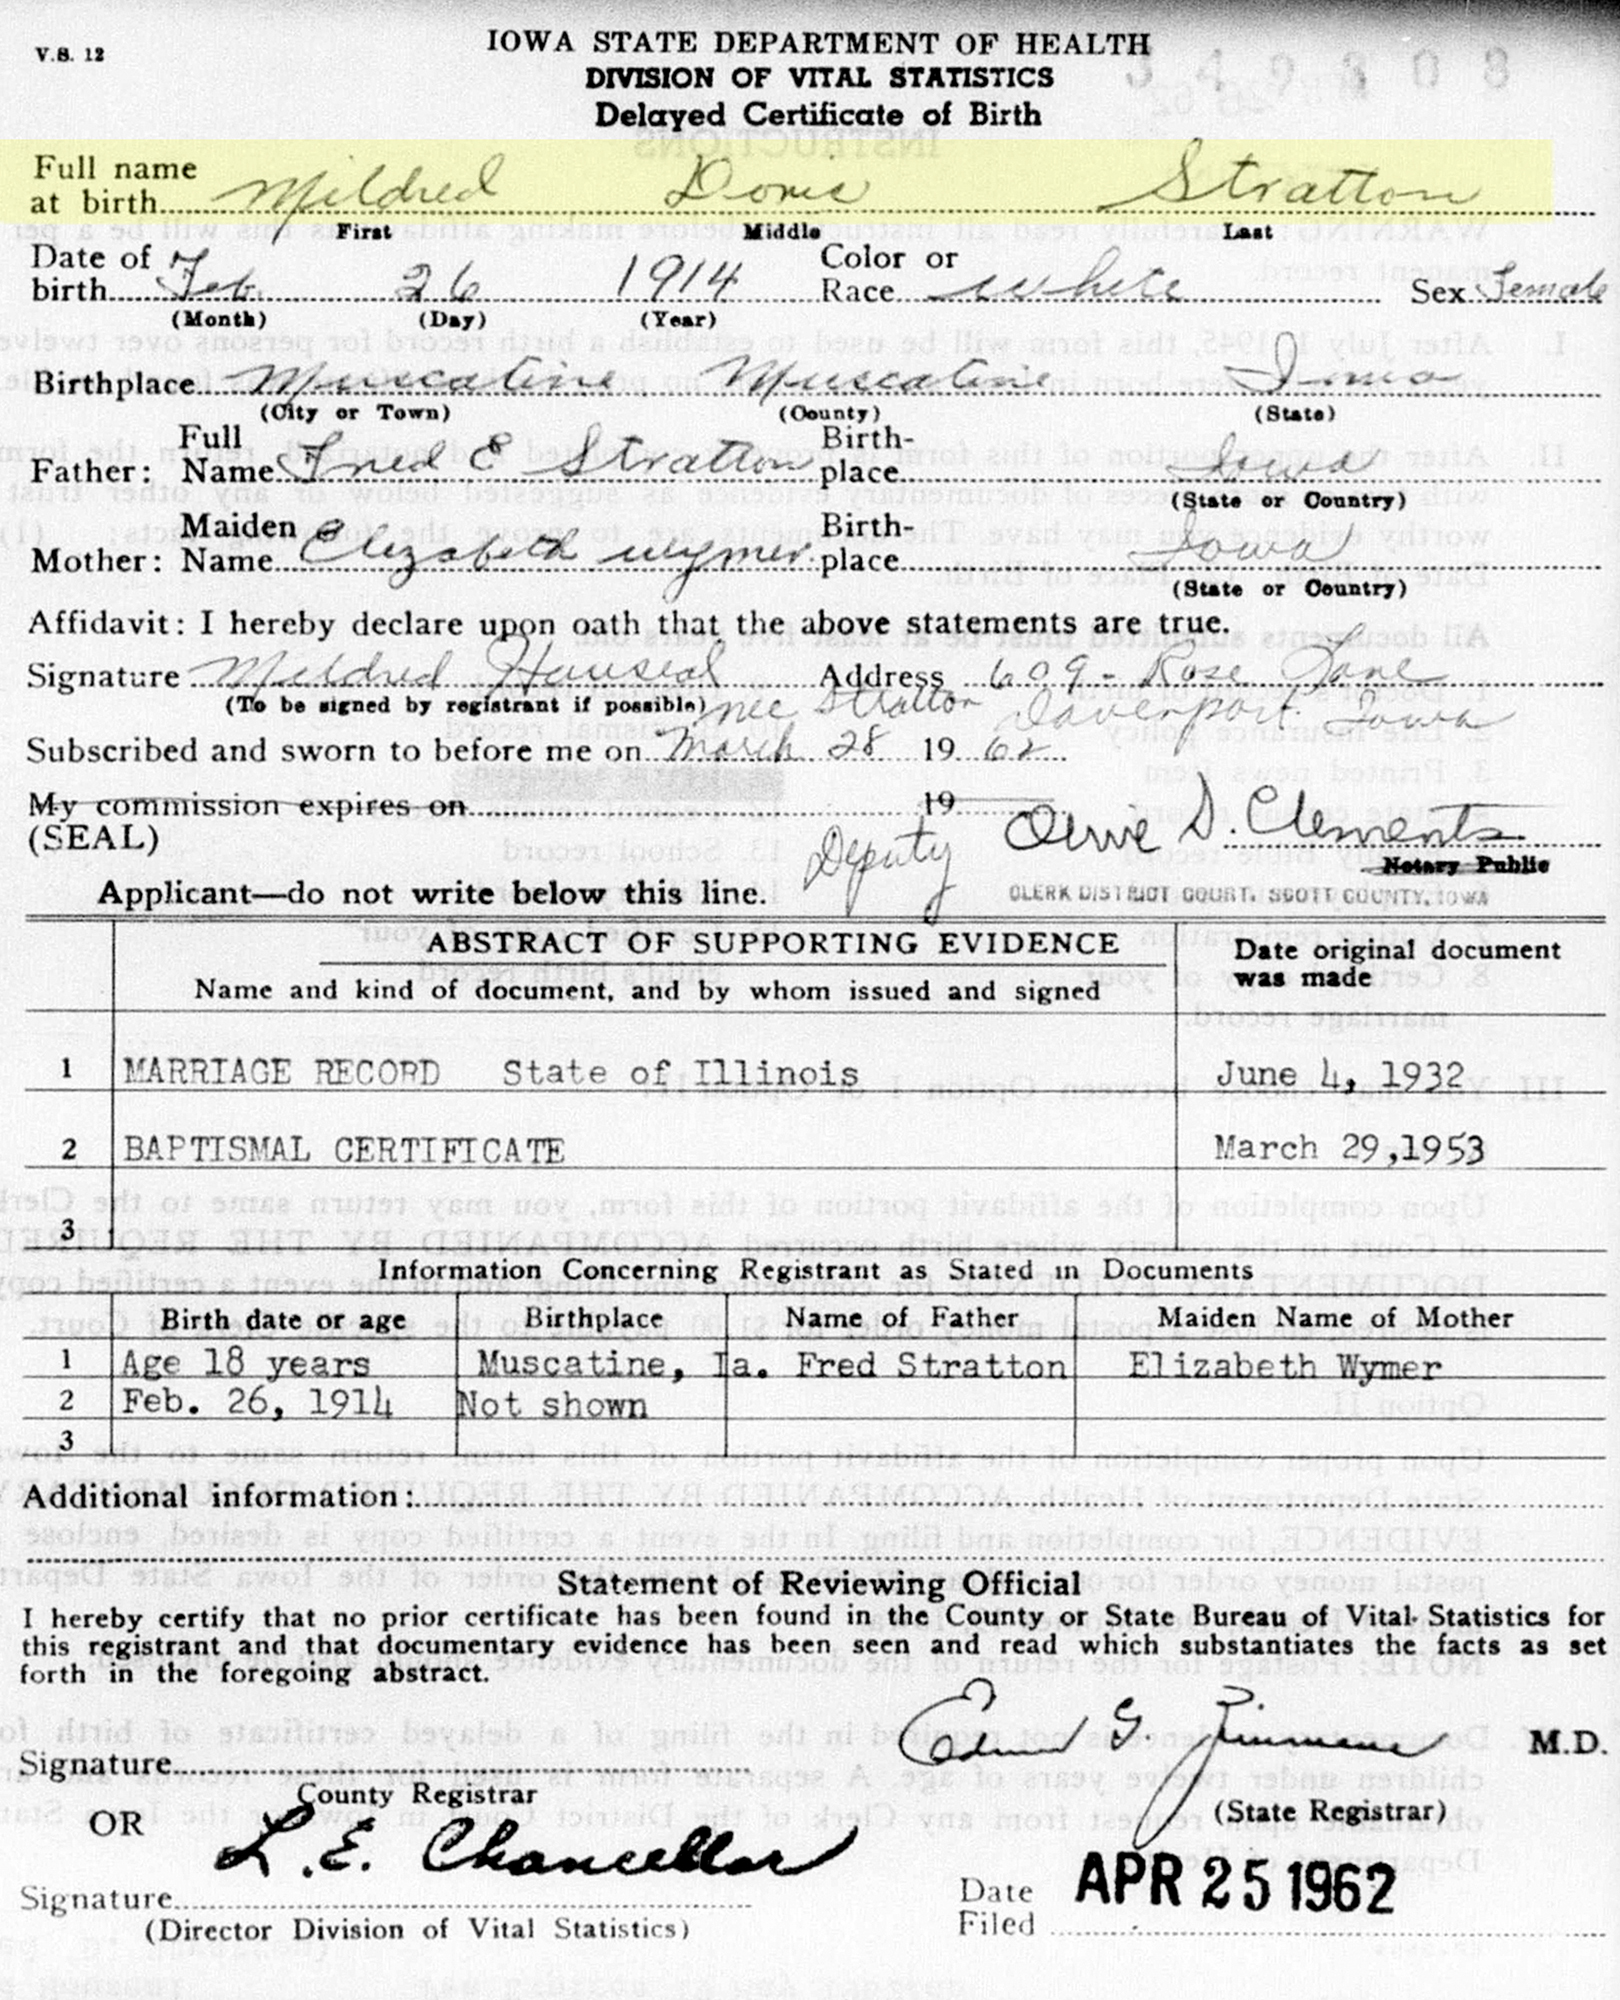 V.S. 12
IOWA STATE DEPARTMENT OF HEALTH
DIVISION OF VITAL STATISTICS
Delayed Certificate of Birth
Full name
at birth Mildred Doris Stratton
First Middle Last
Date of birth Feb. 26 1914 Color or Race white Sex Female
(Month) (Day) (Year)
Birthplace Muscatine Muscatine Iowa
(City or Town) (County) (State)
Father: Full Name Fred E Stratton Birth-place Iowa
(State or Country)
Mother: Maiden Name Elizabeth Wymer Birth-place Iowa
(State or Country)
Affidavit: I hereby declare upon oath that the above statements are true.
Signature Mildred Address 609 - Rose Lane
(To be signed by registrant if possible) nee Stratton Davenport. Iowa
Subscribed and sworn to before me on March 28 1962
My commission expires on 19
(SEAL) Deputy Olive D. Clements
Notary Public
Applicant—do not write below this line. CLERK DISTRICT COURT, SCOTT COUNTY, IOWA
ABSTRACT OF SUPPORTING EVIDENCE
Name and kind of document, and by whom issued and signed
Date original document
was made
1 MARRIAGE RECORD State of Illinois June 4, 1932
2 BAPTISMAL CERTIFICATE March 29,1953
3
Information Concerning Registrant as Stated in Documents
Birth date or age Birthplace Name of Father Maiden Name of Mother
1 Age 18 years Muscatine, Ia. Fred Stratton Elizabeth Wymer
2 Feb. 26, 1914 Not shown
3
Additional information:
Statement of Reviewing Official
I hereby certify that no prior certificate has been found in the County or State Bureau of Vital Statistics for
this registrant and that documentary evidence has been seen and read which substantiates the facts as set
forth in the foregoing abstract.
Signature M.D.
County Registrar (State Registrar)
OR L.E. Chancellor
Signature Date Filed APR 25 1962
(Director Division of Vital Statistics)